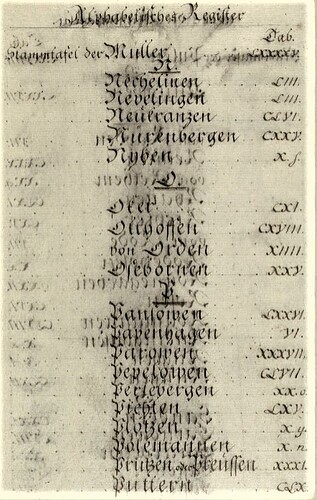 Alphabetisches Register
Tab.
Stammtafel der Muller LXXXV.
N
Nechelinen LIII.
Nevelingen LIII.
Neueranzen CLVI.
Nurenbergen CXXV.
Nyben X. f.
O
CXI.
CXVIII.
von Orden XIIII.
Oseboren XXV.
P
Panlowen LXXVI.
Papenhagen VI.
Parowen XXXVII.
Pepelowen CLVII.
Perlebergen
LXV.
Plotzen X. g.
Polemannen X. n.
Prutzen oder Preussen XXXI.
Putlern CLX.